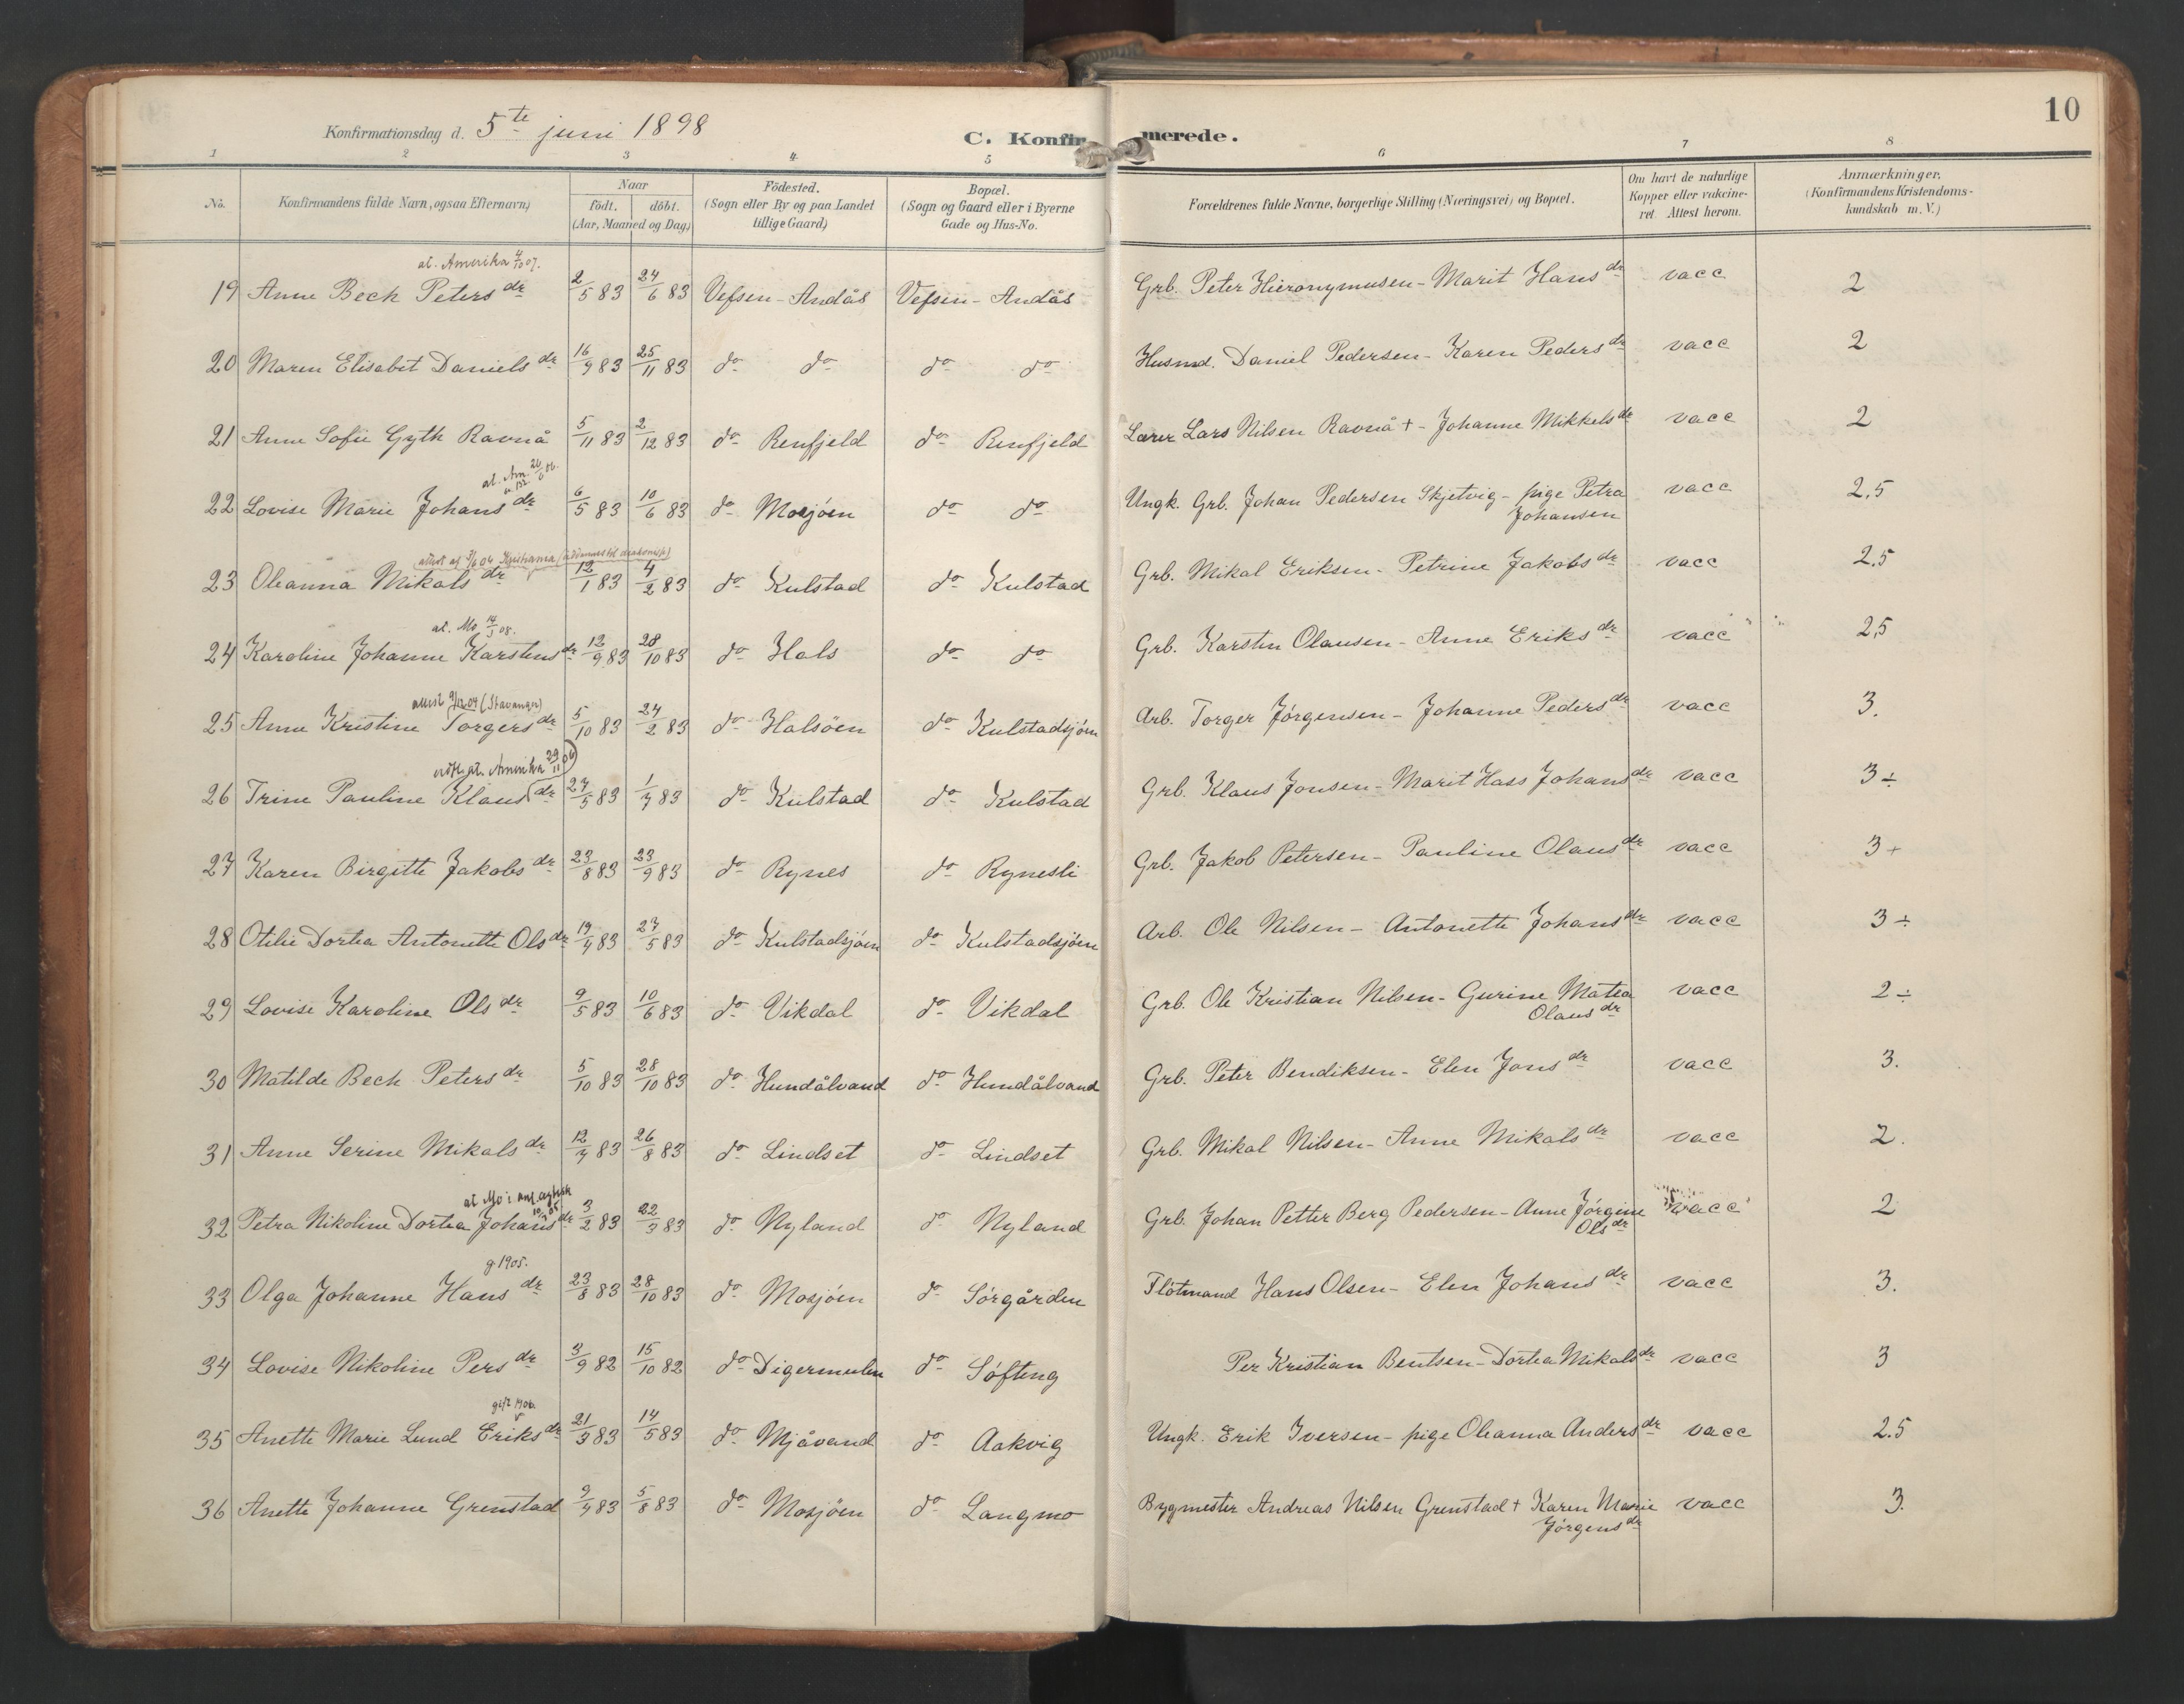 10
Konfirmationsdag d. 5te juni 1898
C. Konfirmerede.
1 2 3 4 5 6 7 8
No. Konfirmandens fulde Navn, ogsaa Efternavn) Naar født. døbt. (Aar, Maaned og Dag) Födested. (Sogn eller By og paa Landet tillige Gaard) Bopæl. (Sogn og Gaard eller i Byerne Gade og Hus-No. Forældrenes fulde Navne, borgerlige Stilling (Næringsvei) og Bopæl. Om havt de naturlige Kopper eller vakcineret. Attest herom. Anmærkninger. (Konfirmandens Kristendomskundskab m. V.)
at. Amerika 4/10 07.
19 Anne Bech Petersdr 2/5 83 24/6 83 Vefsen - Andås Vefsen - Andås Grb. Peter Hieronymusen - Marit Hansdr vacc 2
20 Maren Elisabet Danielsdr 16/9 83 25/11 83 do do do do Husmd. Daniel Pedersen - Karen Pedersdr vacc 2
21 Anne Sofie Gyth Ravnå 5/11 83 2/12 83 do Renfjeld do Renfjeld Lærer Lars Nilsen Ravnå + - Johanne Mikkelsdr vacc 2
at. Am. 26/6 06.
22 Lovise Marie Johansdr 6/5 83 10/6 83 do Mosjöen do do Ungk. Grb. Johan Pedersen Skjetvig - pige Petra Johansen vacc 2,5
attest af 9/6 04 Kristiania
23 Oleanna Mikalsdr 12/1 83 4/2 83 do Kulstad do Kulstad Grb. Mikal Eriksen - Petrine Jakobsdr vacc 2,5
at. Mo 14/5 08.
24 Karoline Johanne Karstensdr 12/9 83 28/10 83 do Hals do do Grb. Karsten Olausen - Anne Eriksdr vacc 2,5
attest 9/12 04 (Stavanger)
25 Anne Kristine Torgersdr 5/10 83 24/2 83 do Halsöen do Kulstadsjöen Arb. Torger Jörgensen - Johanne Pedersdr vacc 3.
at. Amerika 29/11 06
26 Trine Pauline Klausdr 27/5 83 1/7 83 do Kulstad do Kulstad Grb. Klaus Jonsen - Marit Hass Johansdr vacc 3÷
27 Karen Birgitte Jakobsdr 23/8 83 23/9 83 do Rynes do Rynesli Grb. Jakob Petersen - Pauline Olausdr vacc 3+
28 Otilie Dortea Antonette Olsdr 19/4 83 27/5 83 do Kulstadsjöen do Kulstadsjöen Arb. Ole Nilsen - Antonette Johansdr vacc 3÷
29 Lovise Karoline Olsdr 9/5 83 10/6 83 do Vikdal do Vikdal Grb. Ole Kristian Nilsen - Gurine Matea Olausdr vacc 2÷
30 Matilde Bech Petersdr 5/10 83 28/10 83 do Hundålvand do Hundålvand Grb. Peter Bendiksen - Elen Jonsdr vacc 3.
31 Anne Serine Mikalsdr 12/7 83 26/8 83 do Lindset do Lindset Grb. Mikal Nilsen - Anne Mikalsdr vacc 2.
at Mo i
32 Petra Nikoline Dortea Johansdr 3/2 83 22/3 83 do Nyland do Nyland Grb. Johan Petter Berg Pedersen - Anne Jörgine Olsdr vacc 2
g. 1905.
33 Olga Johanne Hansdr 23/8 83 28/10 83 do Mosjöen do Sörgården Flötmand Hans Olsen - Elen Johansdr vacc 3.
34 Lovise Nikoline Persdr 3/9 82 15/10 82 do Digermulen do Söfting Per Kristian Bentsen - Dortea Mikalsdr vacc 3
gift 1906.
35 Anette Marie Lund Eriksdr 21/3 83 14/5 83 do Mjåvand do Aakvig Ungk. Erik Iversen - pige Oleanna Andersdr vacc 2.5
36 Anette Johanne Grenstad 9/7 83 5/8 83 do Mosjöen do Langmo Bygmester Andreas Nilsen Grenstad + Karen Marie Jörgensdr vacc 3.